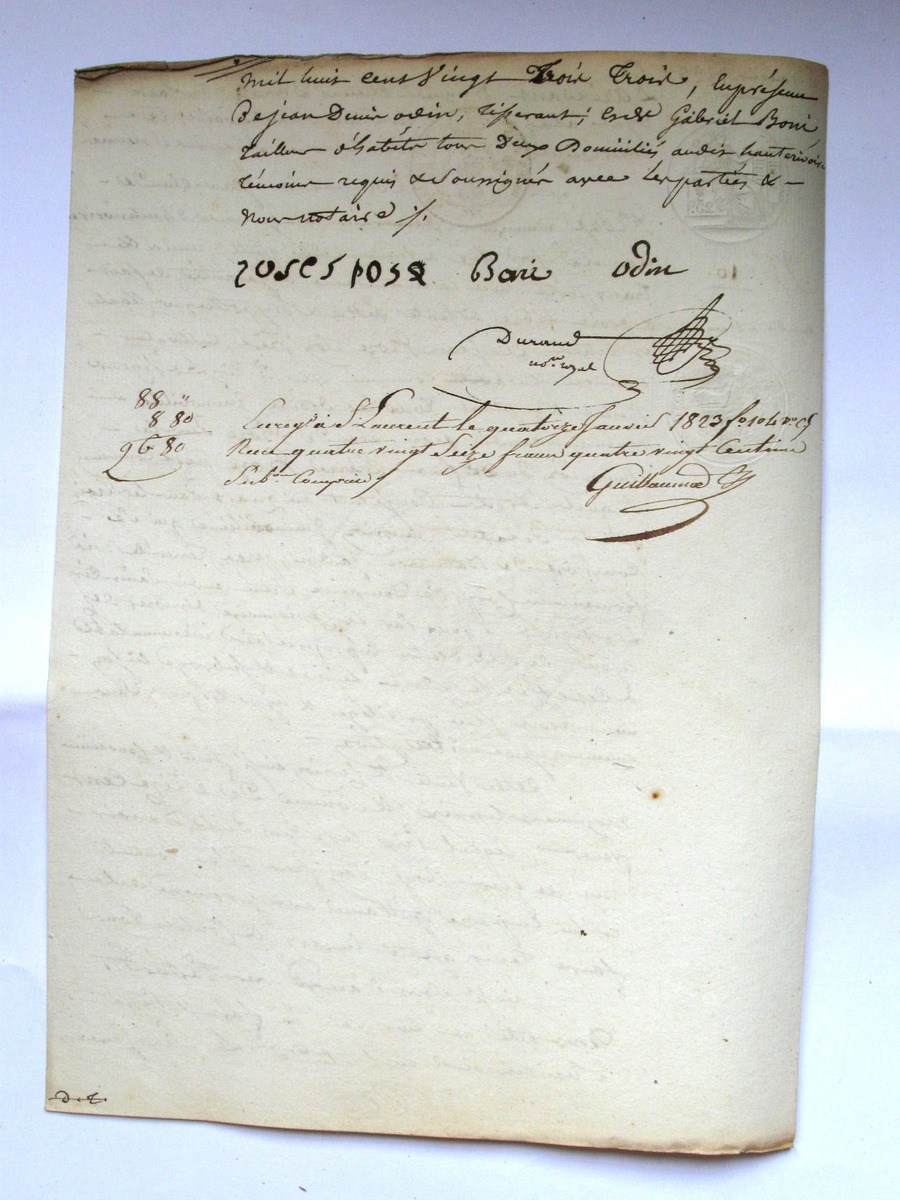 mil huit cent vingt Trois Trois, En présence
De jean Denis odin, tisserant, Et de Gabriel Boni
tailleur d'habits tous Deux Domiciliés audit hauterivois
témoins requis & soussignés avec les parties & -
nous notaire ./.
Boni odin
Durand
no.re royal
88 "
8 80
96 80
Enreg.é à St Laurent le quatorze Janvier 1823 fo 104 vo c5
Reçu quatre vingt Seize francs quatre vingt Centimes
Sub.on Comprise
Guillaumod
D. t.